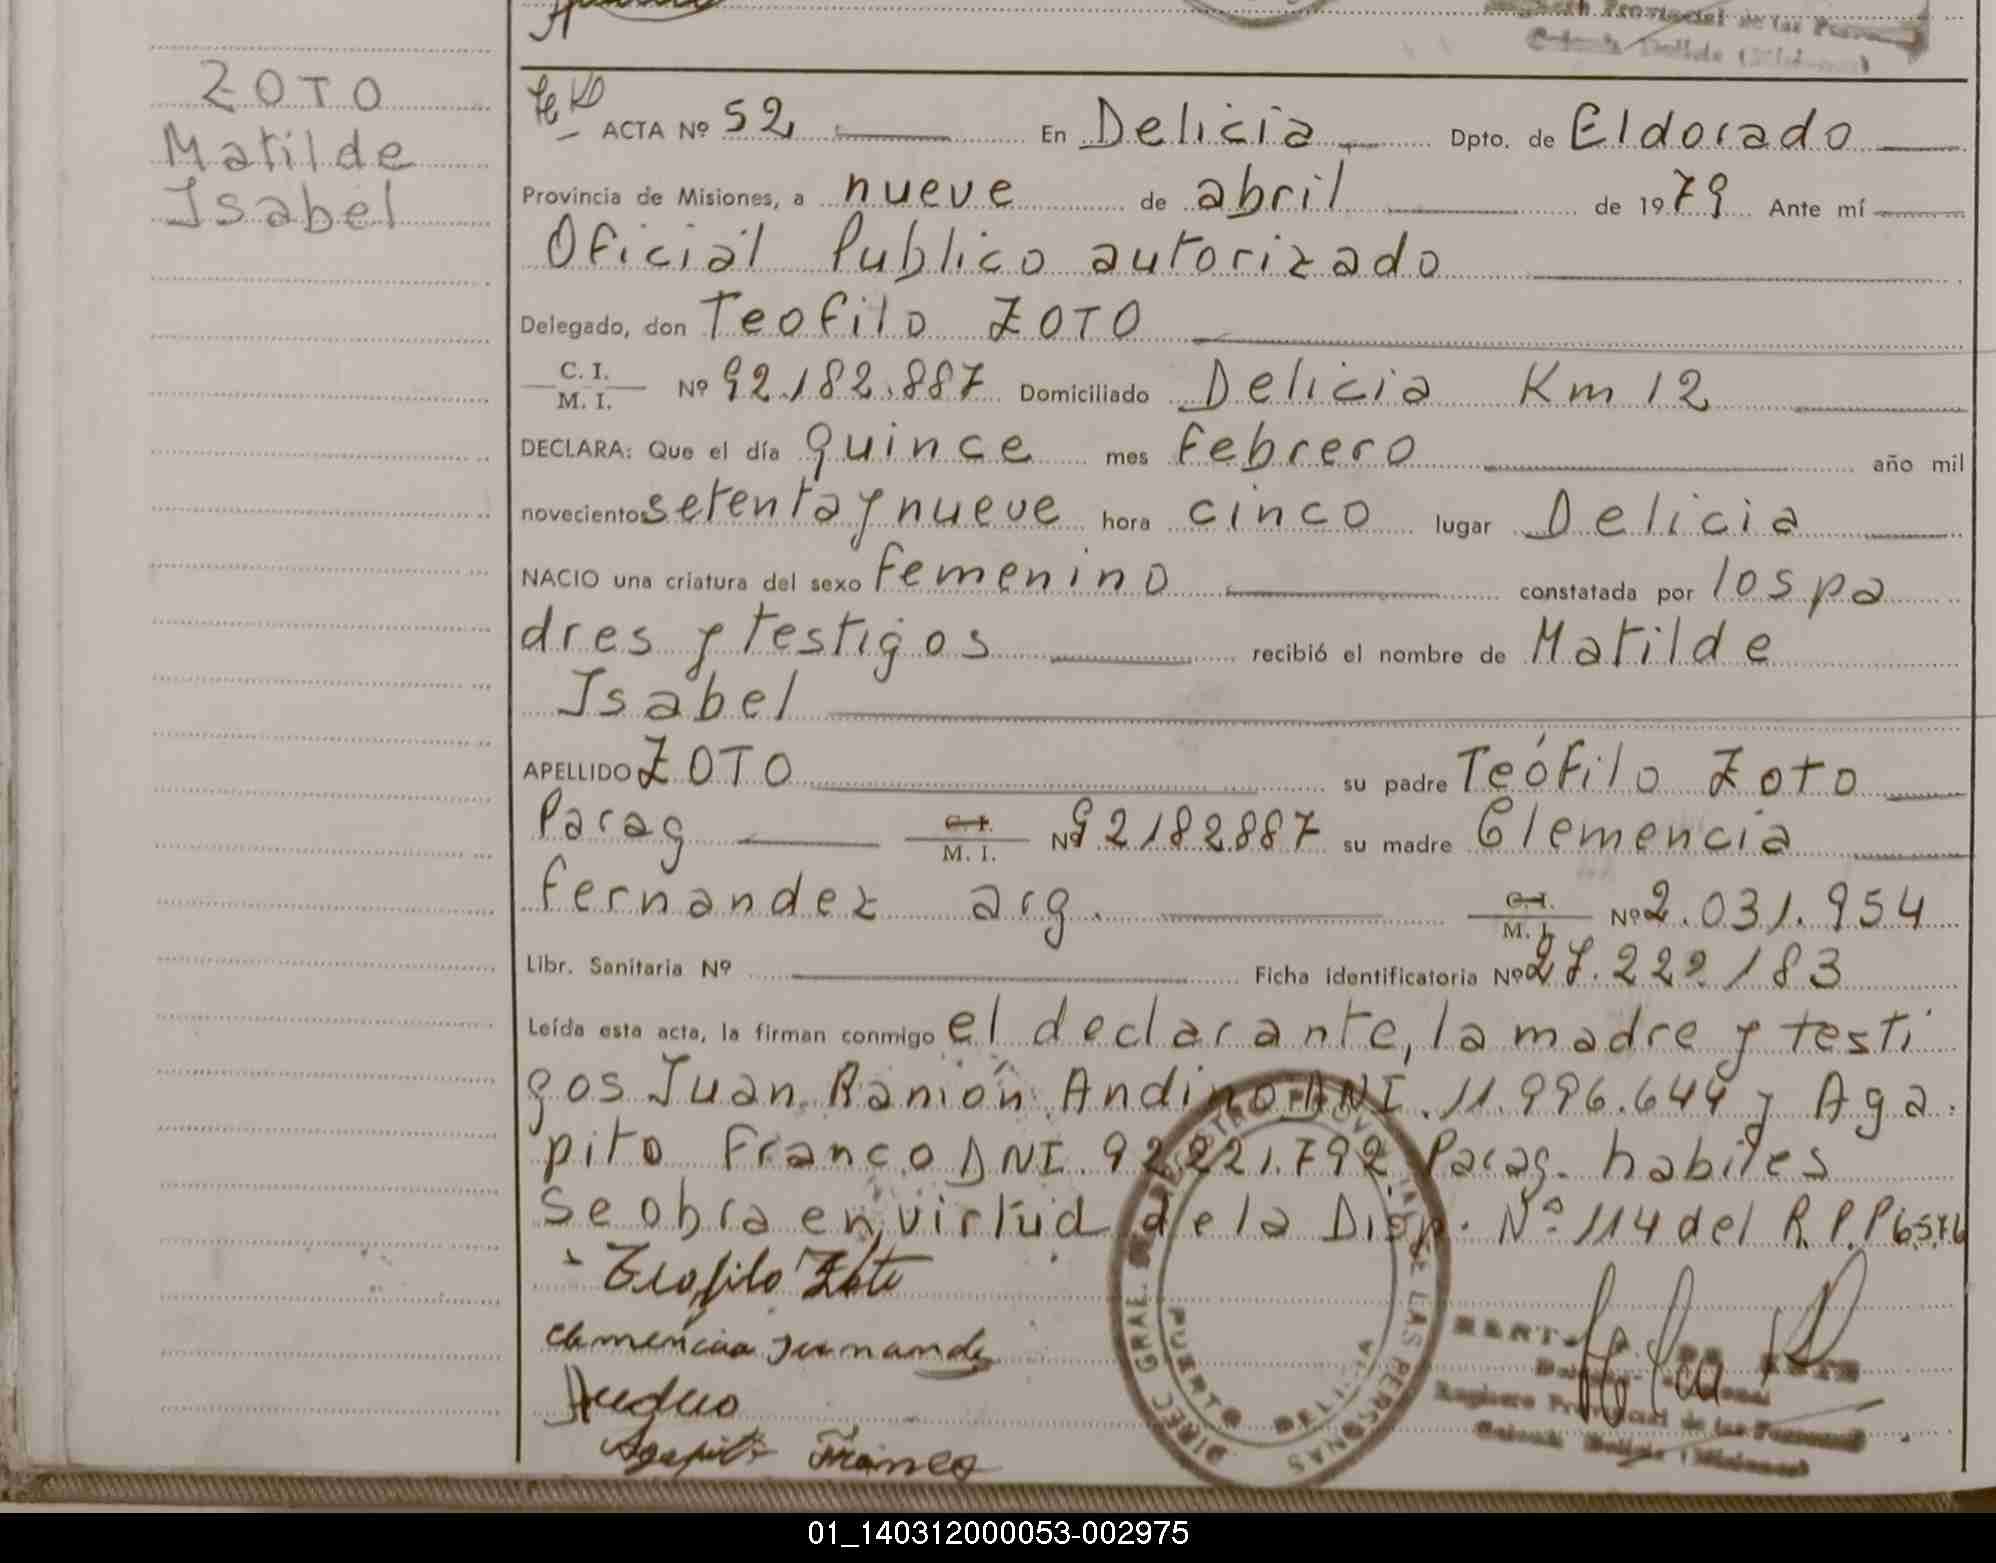 Registro Provincial de las Personas
Colonia Delicia (Misiones)
ZOTO
Matilde
Isabel
ACTA Nº 52 En Delicia Dpto. de Eldorado
Provincia de Misiones, a nueve de abril de 1979 Ante mí
Oficial Publico autorizado
Delegado, don Teofilo ZOTO
C. I.
M. I. Nº 92.182.887 Domiciliado Delicia Km 12
DECLARA: Que el día quince mes febrero año mil
novecientos setenta y nueve hora cinco lugar Delicia
NACIO una criatura del sexo femenino constatada por los pa
dres y testigos recibió el nombre de Matilde
Isabel
APELLIDO ZOTO su padre Teófilo Zoto
Parag C. I. M. I. Nº 92182887 su madre Clemencia
Fernandez arg. C. I. M. I. Nº 2.031.954
Libr. Sanitaria Nº Ficha identificatoria Nº 27.222183
Leída esta acta, la firman conmigo el declarante, la madre y testi
gos Juan Ramón Andino DNI. 11.996.644 y Aga
pito Franco DNI. 92.221.792. Parag. habiles
se obra en virtud de la Disp. Nº 114 del R.P.P
Teofilo Zoto
Clemencia Fernande
Agapito Franco
DIREC. GRAL. REGISTRO PROVINCIAL DE LAS PERSONAS
PUERTO DELICIA
Registro Provincial de las Personas
Colonia Delicia (Misiones)
01_140312000053-002975